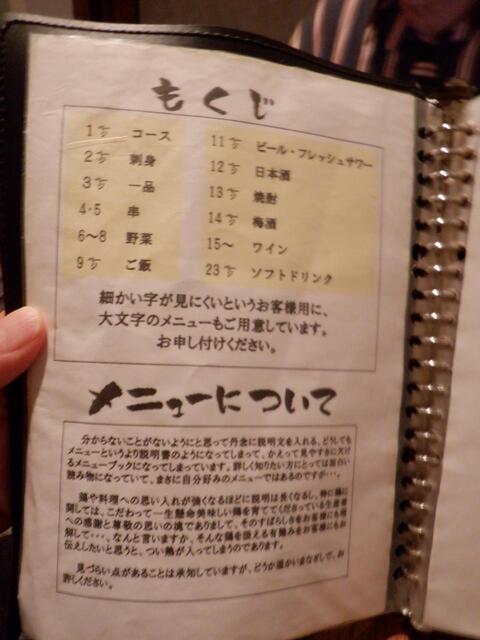 もくじ
1㌻ コース
2㌻ 刺身
3㌻ 一品
4・5 串
6～8 野菜
9㌻ ご飯
11㌻ ビール・フレッシュサワー
12㌻ 日本酒
13㌻ 焼酎
14㌻ 梅酒
15～ ワイン
23㌻ ソフトドリンク
細かい字が見にくいというお客様用に、
大文字のメニューもご用意しています。
お申し付けください。
メニューについて
分からないことがないようにと思って丹念に説明文を入れる、どうしても
メニューというより説明書のようになってしまって、かえって見やすさに欠け
るメニューブックになってしまっています。詳しく知りたい方にとっては面白い
読み物になっていて、まさに自分好みのメニューではあるのですが…。
鶏や料理への思い入れが強くなるほどに説明は長くなるし、特に鶏に
関しては、こだわって一生懸命美味しい鶏を育ててくださっている生産者
への感謝と尊敬の思いの塊でありまして、そのすばらしさをお客様にも理
解して･･･、なんと言いますか、そんな鶏を扱える有難みをお客様にもお
伝えしたいと思うと、つい熱が入ってしまうのであります。
見づらい点があることは承知していますが、どうか温かいまなざしで、お
許しください。